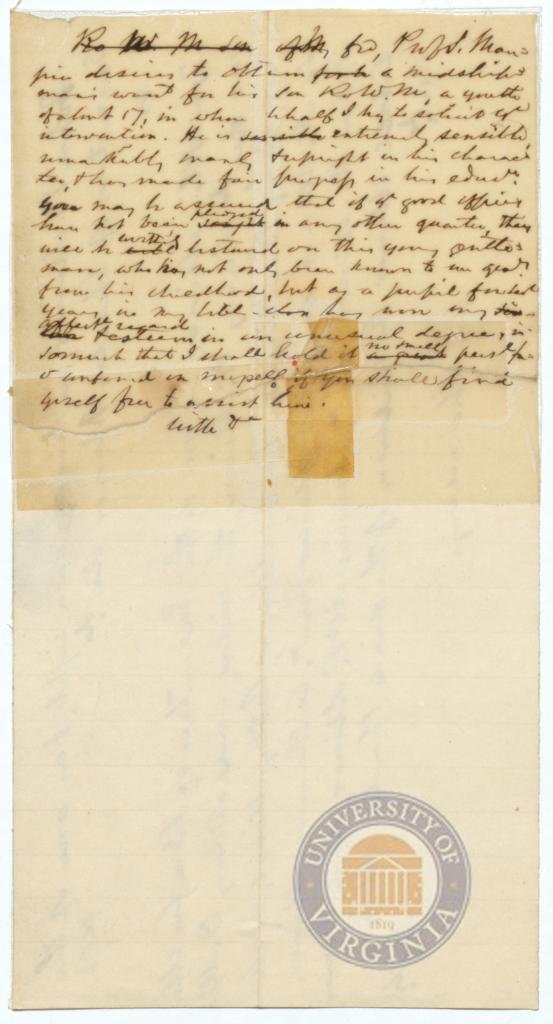 Ro W. M son of My frd, Prof. J. Mau=
pin desires to obtain such a midship=
man's want for his son Ro W. M., a youth
of about 17, in whose behalf I beg to solicit yr
intervention. He is sensible extremely sensible,
remarkably manly & upright in his charac=
ter, & has made fair progress in his educn.
You may be assured that if yr good offices
have not been pledged in any other quarter, they
will be well bestowed on this young gentle=
man, who has not only been known to me
from his childhood, but as a pupil for
years in my has won my
affecte regard
& esteem in an unusual degree, in=
somuch that I shall hold it no small
conferred on myself if you shall find
yrself free to assist him.
With &c
UNIVERSITY OF VIRGINIA
1819